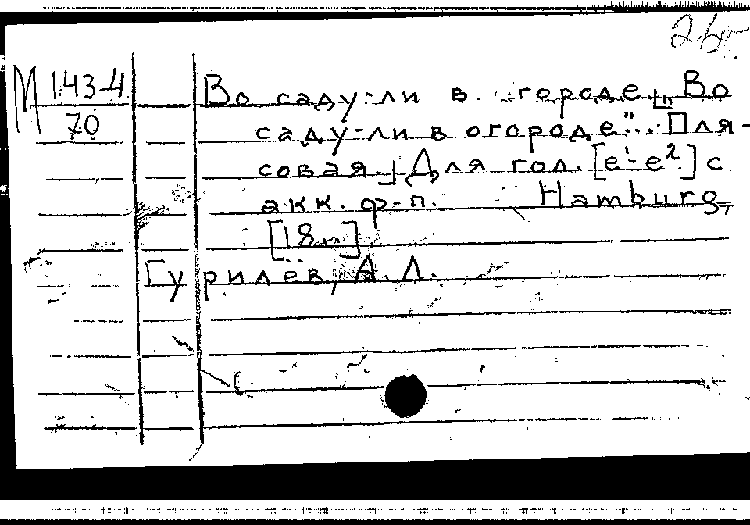 М 143-4
70
Во саду-ли в городе [„Во
саду-ли в огороде"... Пля-
совая.] Для гол. [e¹-e²] с
акк. ф-п. Hamburg,
Гурилёв, А. Л.